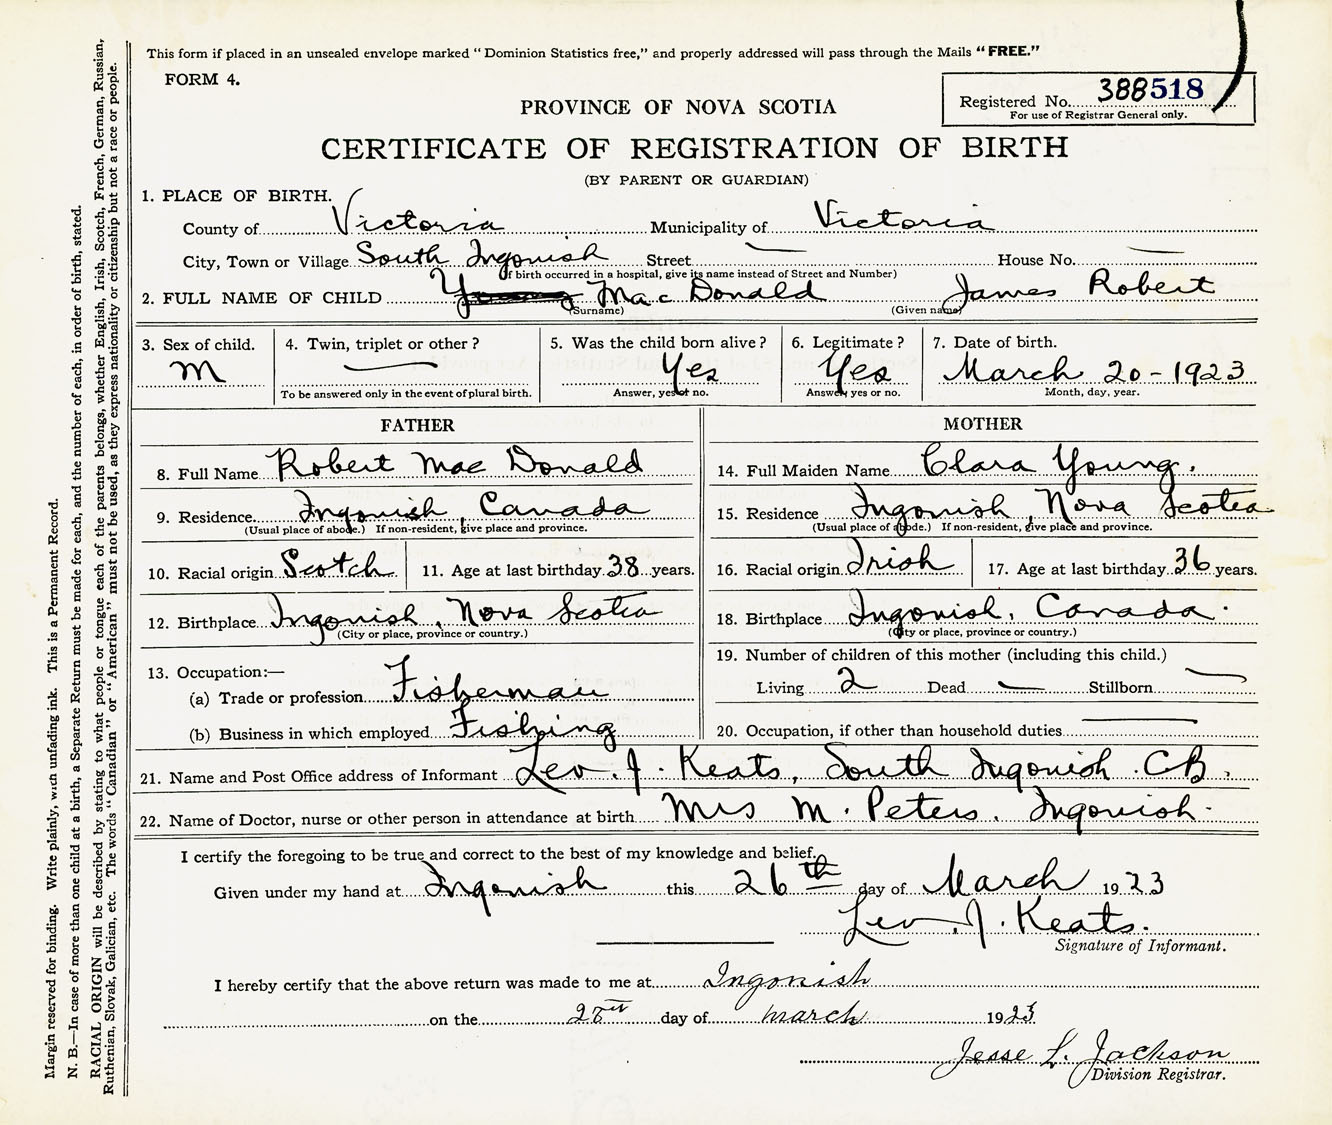 This form if placed in an unsealed envelope marked "Dominion Statistics free," and properly addressed will pass through the Mails "FREE."
FORM 4.
Registered No. 388518
For use of Registrar General only.
PROVINCE OF NOVA SCOTIA
CERTIFICATE OF REGISTRATION OF BIRTH
(BY PARENT OR GUARDIAN)
1. PLACE OF BIRTH.
County of Victoria Municipality of Victoria
City, Town or Village South Ingonish Street — House No. —
(If birth occurred in a hospital, give its name instead of Street and Number)
2. FULL NAME OF CHILD Young MacDonald James Robert
(Surname) (Given name)
3. Sex of child. 4. Twin, triplet or other? 5. Was the child born alive? 6. Legitimate? 7. Date of birth.
M — Yes Yes March 20-1923
To be answered only in the event of plural birth. Answer, yes or no. Answer, yes or no. Month, day, year.
FATHER
8. Full Name Robert Mac Donald
9. Residence Ingonish, Canada
(Usual place of abode.) If non-resident, give place and province.
10. Racial origin Scotch 11. Age at last birthday 38 years.
12. Birthplace Ingonish, Nova Scotia
(City or place, province or country.)
13. Occupation:—
(a) Trade or profession Fisherman
(b) Business in which employed Fishing
MOTHER
14. Full Maiden Name Clara Young.
15. Residence Ingonish, Nova Scotia
(Usual place of abode.) If non-resident, give place and province.
16. Racial origin Irish 17. Age at last birthday 36 years.
18. Birthplace Ingonish, Canada.
(City or place, province or country.)
19. Number of children of this mother (including this child.)
Living 2 Dead — Stillborn —
20. Occupation, if other than household duties —
21. Name and Post Office address of Informant Leo. J. Keats, South Ingonish. CB.
22. Name of Doctor, nurse or other person in attendance at birth Mrs M. Peters. Ingonish.
I certify the foregoing to be true and correct to the best of my knowledge and belief.
Given under my hand at Ingonish this 26th day of March 1923
Leo. J. Keats.
Signature of Informant.
I hereby certify that the above return was made to me at Ingonish
on the 28th day of March 1923
Jesse L. Jackson
Division Registrar.
Margin reserved for binding. Write plainly, with unfading ink. This is a Permanent Record.
N. B.—In case of more than one child at a birth, a Separate Return must be made for each, and the number of each, in order of birth, stated.
RACIAL ORIGIN will be described by stating to what people or tongue each of the parents belongs, whether English, Irish, Scotch, French, German, Russian,
Ruthenian, Slovak, Galician, etc. The words "Canadian" or "American" must not be used, as they express nationality or citizenship but not a race or people.